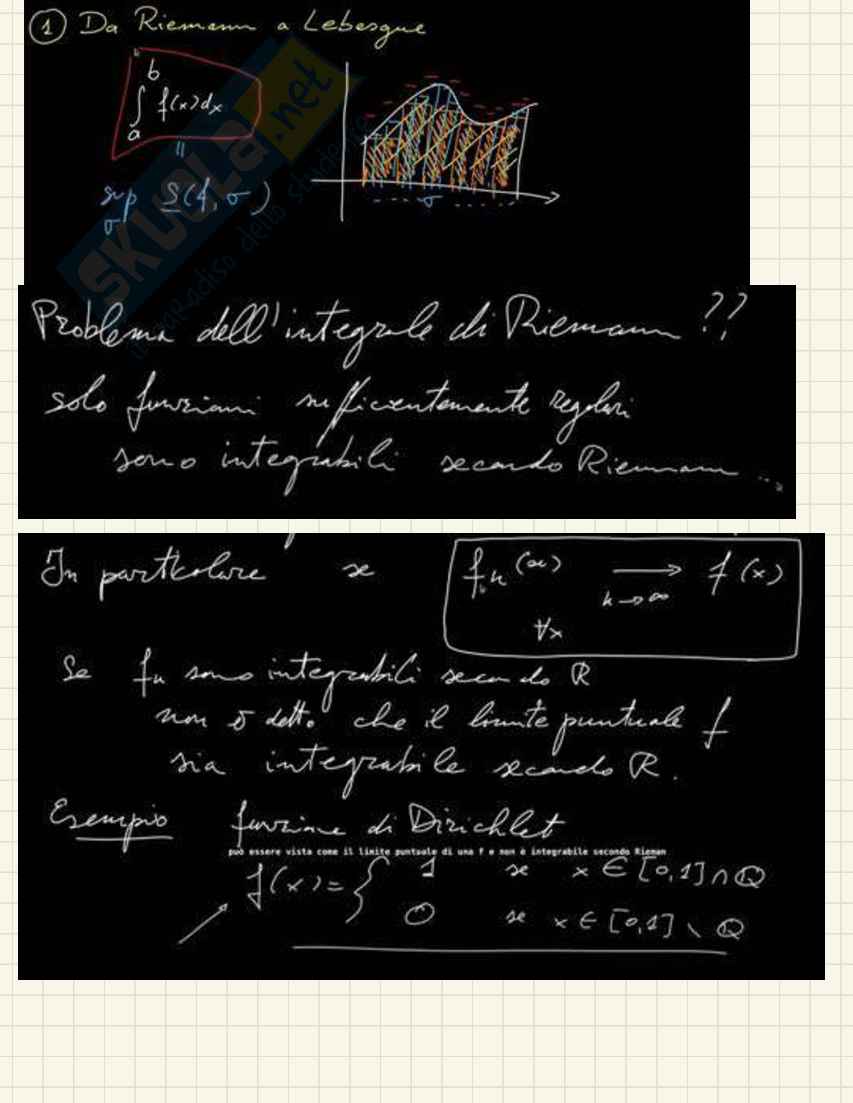 ① Da Riemann a Lebesgue
∫ₐᵇ f(x)dx
=
sup S(f, σ)
σ
σ
SKUOLA.net
il paradiso dello studente
Problema dell'integrale di Riemann ??
solo funzioni sufficientemente regolari
sono integrabili secondo Riemann ...
In particolare se fₖ(x) → f(x)
k→∞
∀x
Se fₖ sono integrabili secondo R
non è detto che il limite puntuale f
sia integrabile secondo R.
Esempio funzione di Dirichlet
può essere vista come il limite puntuale di una f e non è integrabile secondo Rieman
f(x) = { 1 se x ∈ [0,1] ∩ Q
0 se x ∈ [0,1] \ Q